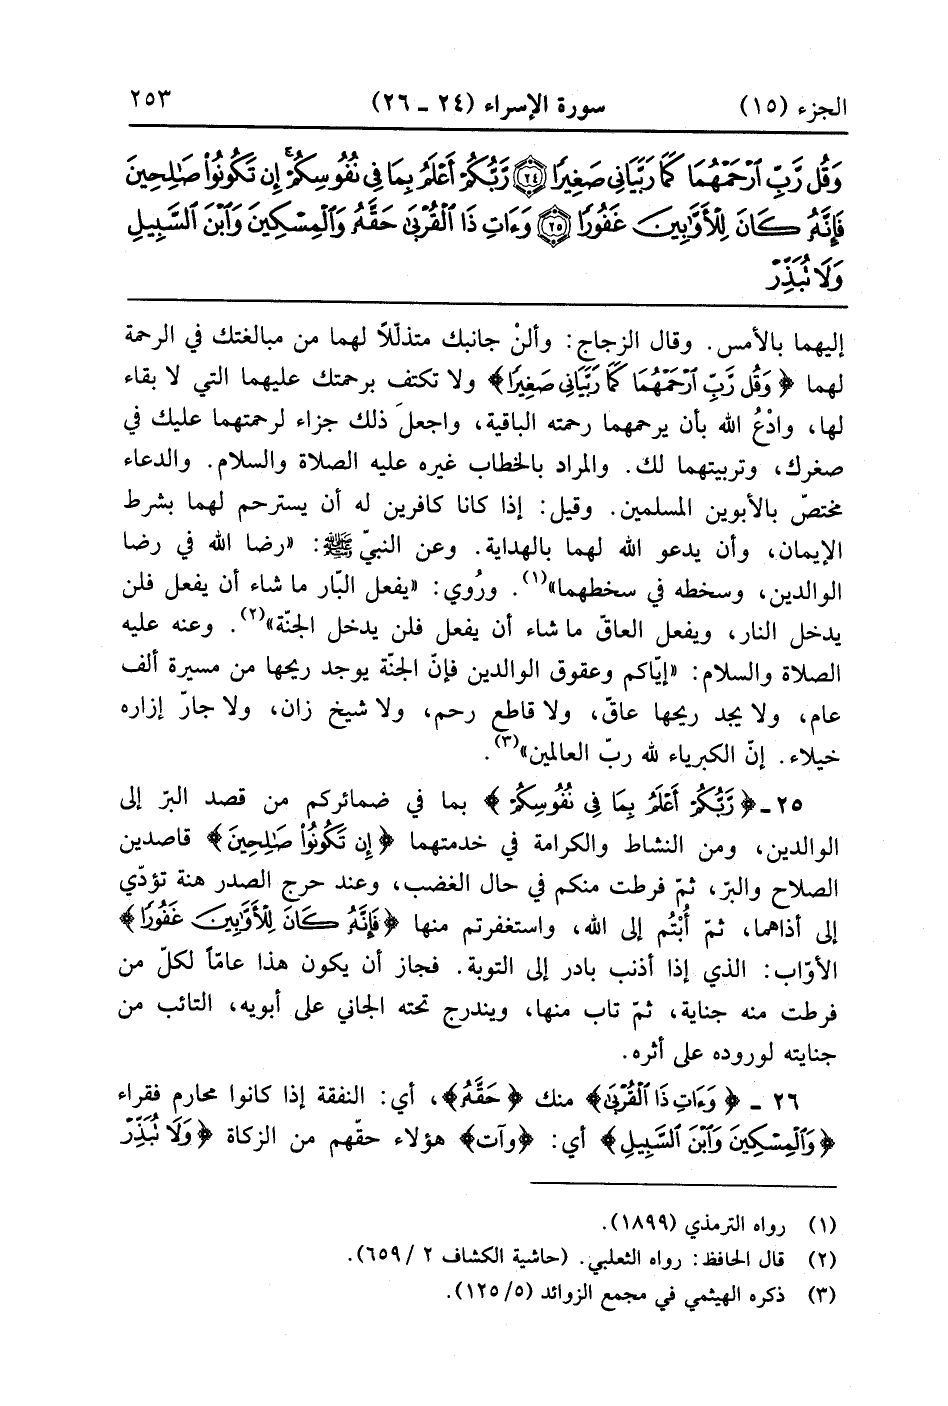 الجزء (١٥) سورة الإسراء (٢٤ - ٢٦) ٢٥٣
وَقُل رَّبِّ ٱرْحَمْهُمَا كَمَا رَبَّيَانِى صَغِيرًا ٢٤ رَّبُّكُمْ أَعْلَمُ بِمَا فِى نُفُوسِكُمْۚ إِن تَكُونُوا۟ صَٰلِحِينَ
فَإِنَّهُۥ كَانَ لِلْأَوَّٰبِينَ غَفُورًا ٢٥ وَءَاتِ ذَا ٱلْقُرْبَىٰ حَقَّهُۥ وَٱلْمِسْكِينَ وَٱبْنَ ٱلسَّبِيلِ
وَلَا تُبَذِّرْ
إليهما بالأمس. وقال الزجاج: وألنْ جانبك متذلّلاً لهما من مبالغتك في الرحمة
لهما ﴿وَقُل رَّبِّ ٱرْحَمْهُمَا كَمَا رَبَّيَانِى صَغِيرًا﴾ ولا تكتف برحمتك عليهما التي لا بقاء
لها، وادْعُ الله بأن يرحمهما رحمته الباقية، واجعلَ ذلك جزاء لرحمتهما عليك في
صغرك، وتربيتهما لك. والمراد بالخطاب غيره عليه الصلاة والسلام. والدعاء
مختصّ بالأبوين المسلمين. وقيل: إذا كانا كافرين له أن يسترحم لهما بشرط
الإيمان، وأن يدعو الله لهما بالهداية. وعن النبيّ ﷺ: «رضا الله في رضا
الوالدين، وسخطه في سخطهما»(١). ورُوي: «يفعل البّار ما شاء أن يفعل فلن
يدخل النار، ويفعل العاقّ ما شاء أن يفعل فلن يدخل الجنّة»(٢). وعنه عليه
الصلاة والسلام: «إيّاكم وعقوق الوالدين فإنّ الجنّة يوجد ريحها من مسيرة ألف
عام، ولا يجد ريحها عاقّ، ولا قاطع رحم، ولا شيخ زان، ولا جارّ إزاره
خيلاء. إنّ الكبرياء لله ربّ العالمين»(٣).
٢٥ - ﴿رَّبُّكُمْ أَعْلَمُ بِمَا فِى نُفُوسِكُمْ﴾ بما في ضمائركم من قصد البرّ إلى
الوالدين، ومن النشاط والكرامة في خدمتهما ﴿إِن تَكُونُوا۟ صَٰلِحِينَ﴾ قاصدين
الصلاح والبرّ، ثمّ فرطت منكم في حال الغضب، وعند حرج الصدر هنة تؤدّي
إلى أذاهما، ثمّ أُبْتُم إلى الله، واستغفرتم منها ﴿فَإِنَّهُۥ كَانَ لِلْأَوَّٰبِينَ غَفُورًا﴾
الأوّاب: الذي إذا أذنب بادر إلى التوبة. فجاز أن يكون هذا عامّاً لكلّ من
فرطت منه جناية، ثمّ تاب منها، ويندرج تحته الجاني على أبويه، التائب من
جنايته لوروده على أثره.
٢٦ - ﴿وَءَاتِ ذَا ٱلْقُرْبَىٰ﴾ منك ﴿حَقَّهُۥ﴾، أي: النفقة إذا كانوا محارم فقراء
﴿وَٱلْمِسْكِينَ وَٱبْنَ ٱلسَّبِيلِ﴾ أي: ﴿وآت﴾ هؤلاء حقّهم من الزكاة ﴿وَلَا تُبَذِّرْ
(١) رواه الترمذي (١٨٩٩).
(٢) قال الحافظ: رواه الثعلبي. (حاشية الكشاف ٢ / ٦٥٩).
(٣) ذكره الهيثمي في مجمع الزوائد (١٢٥/٥).